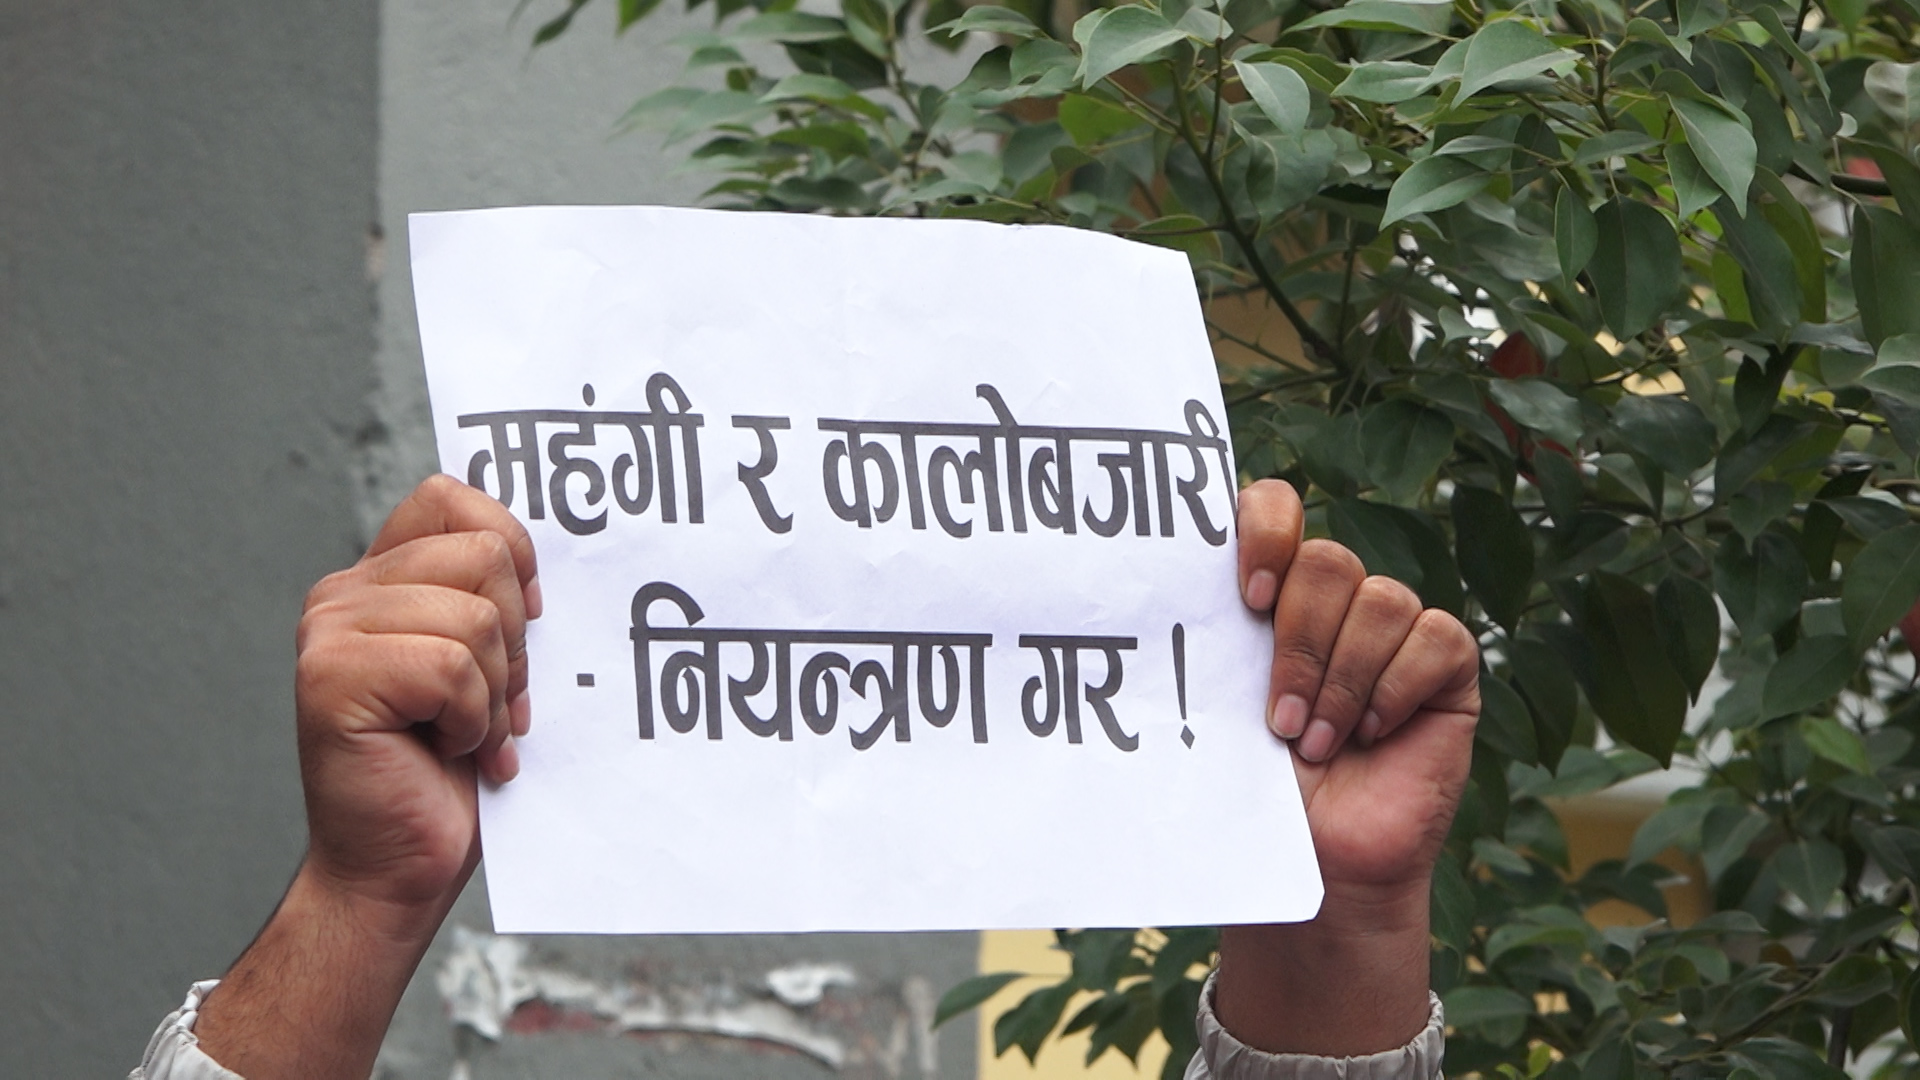 महंगी र कालोबजारी
- नियन्त्रण गर !